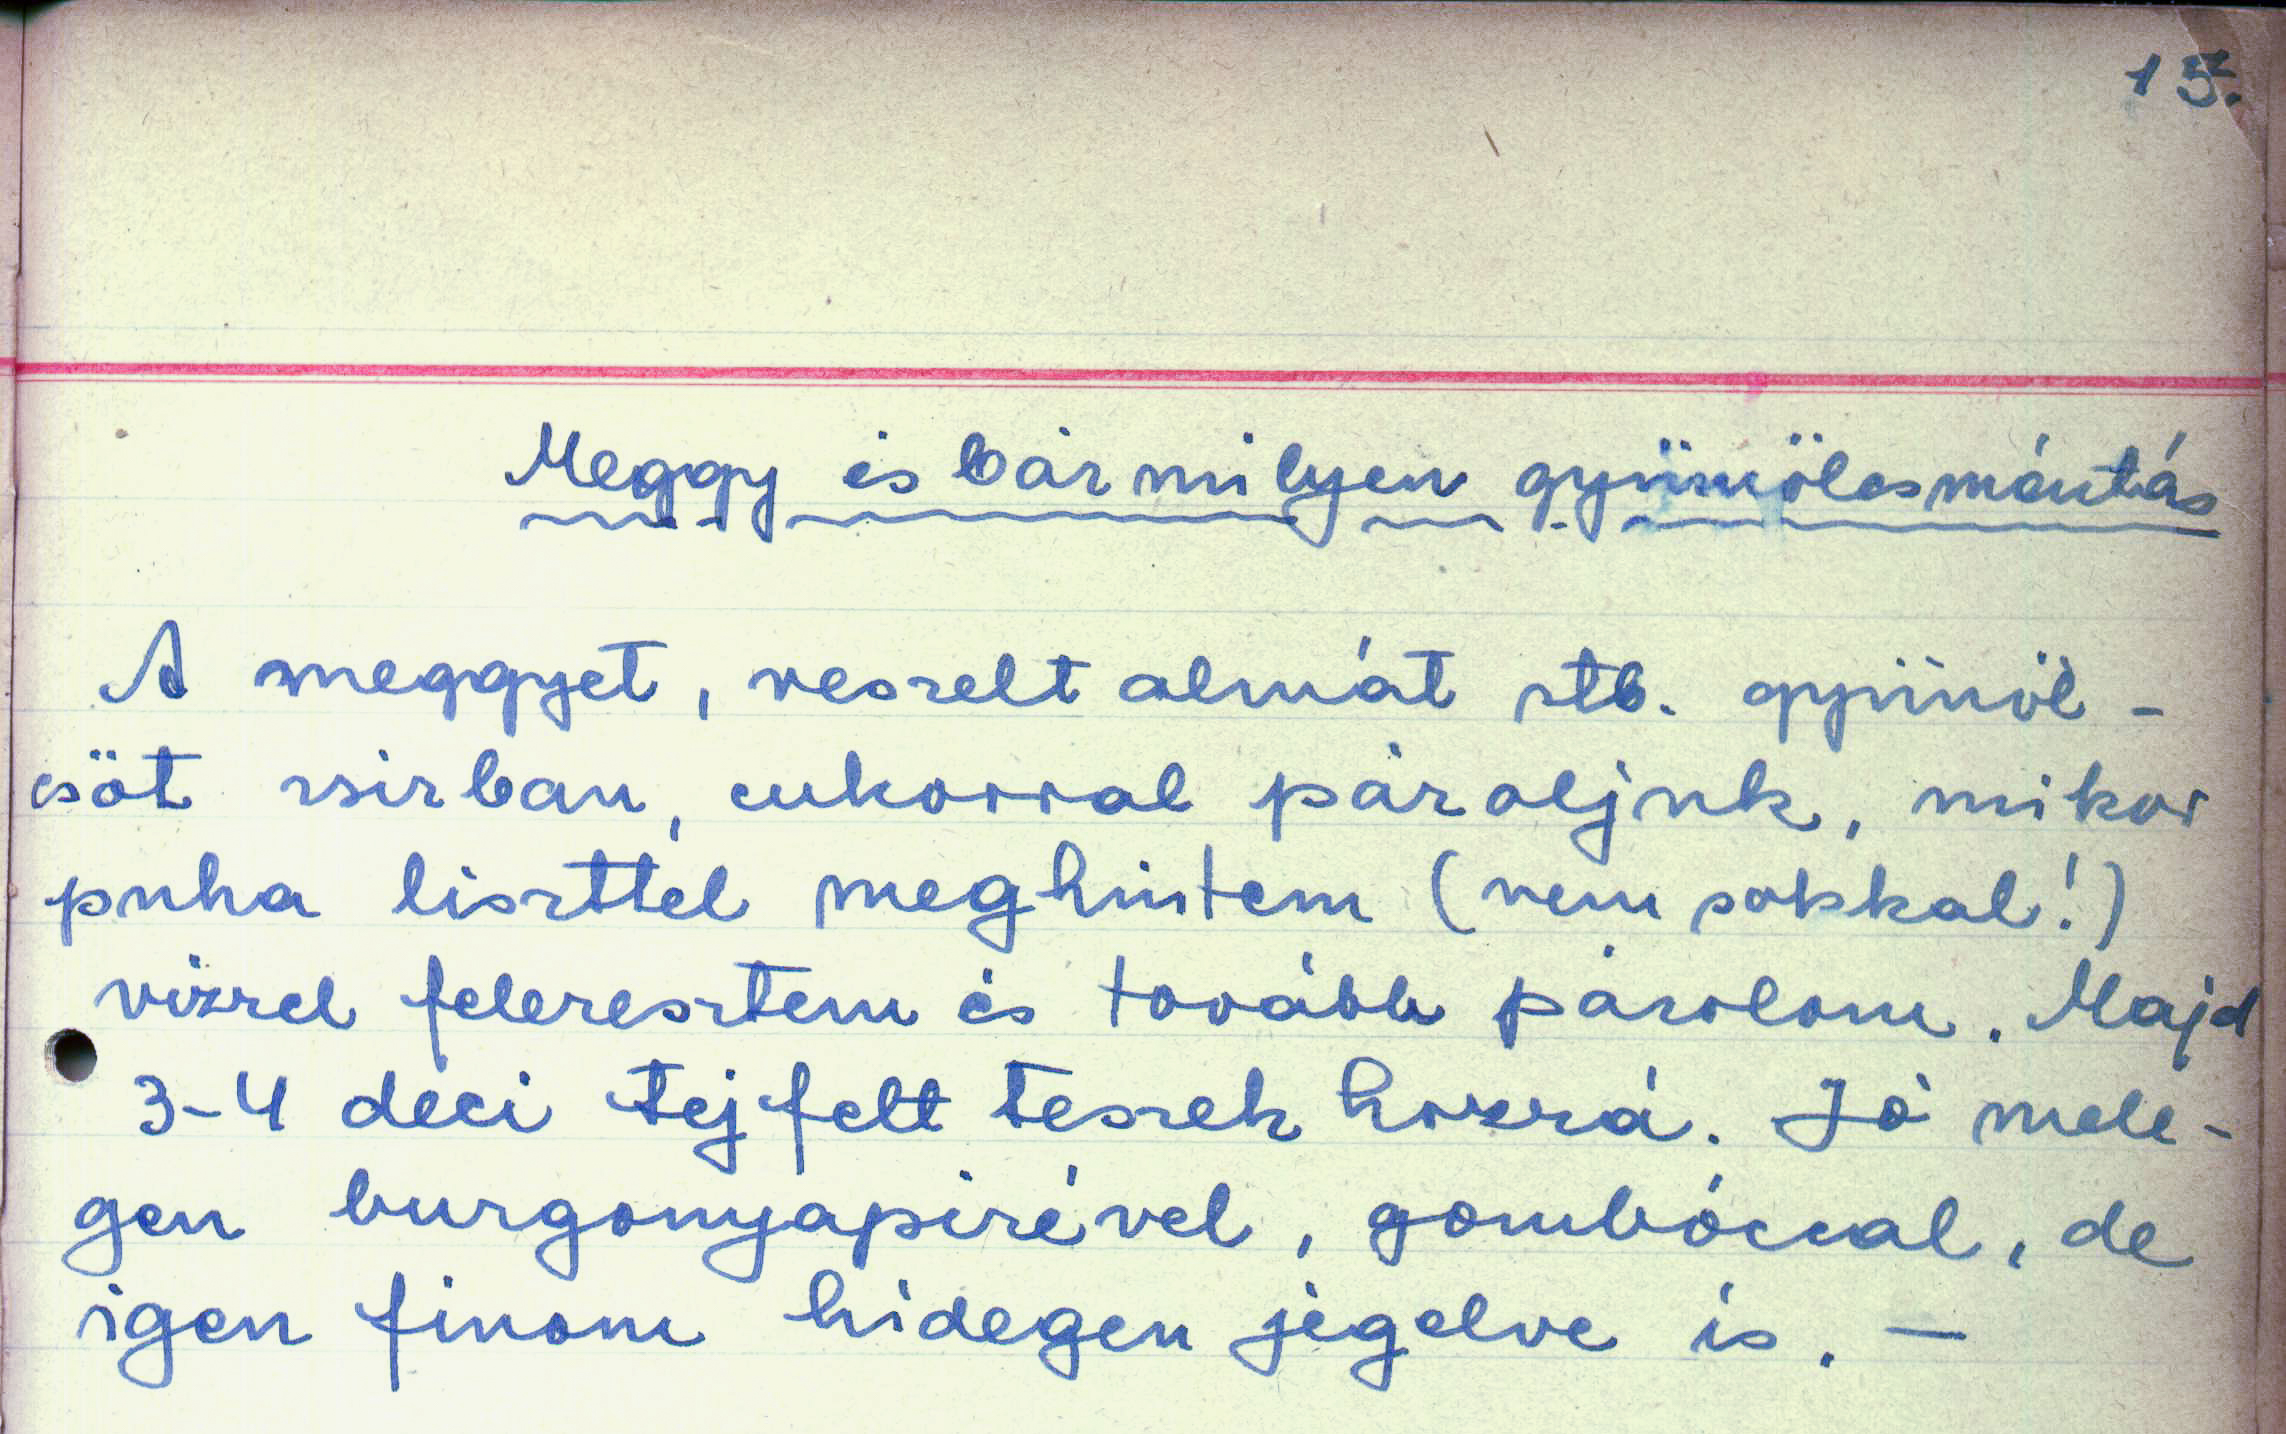 15.
Meggy és bármilyen gyümölcsmártás
A meggyet, reszelt almát stb. gyümöl-
csöt zsirban, cukorral pároljuk, mikor
puha liszttel meghintem (nem sokkal!)
vizzel feleresztem és tovább párolom. Majd
3-4 deci tejfelt teszek hozzá. Jó mele-
gen burgonyapirével, gombóccal, de
igen finom hidegen jégelve is. —